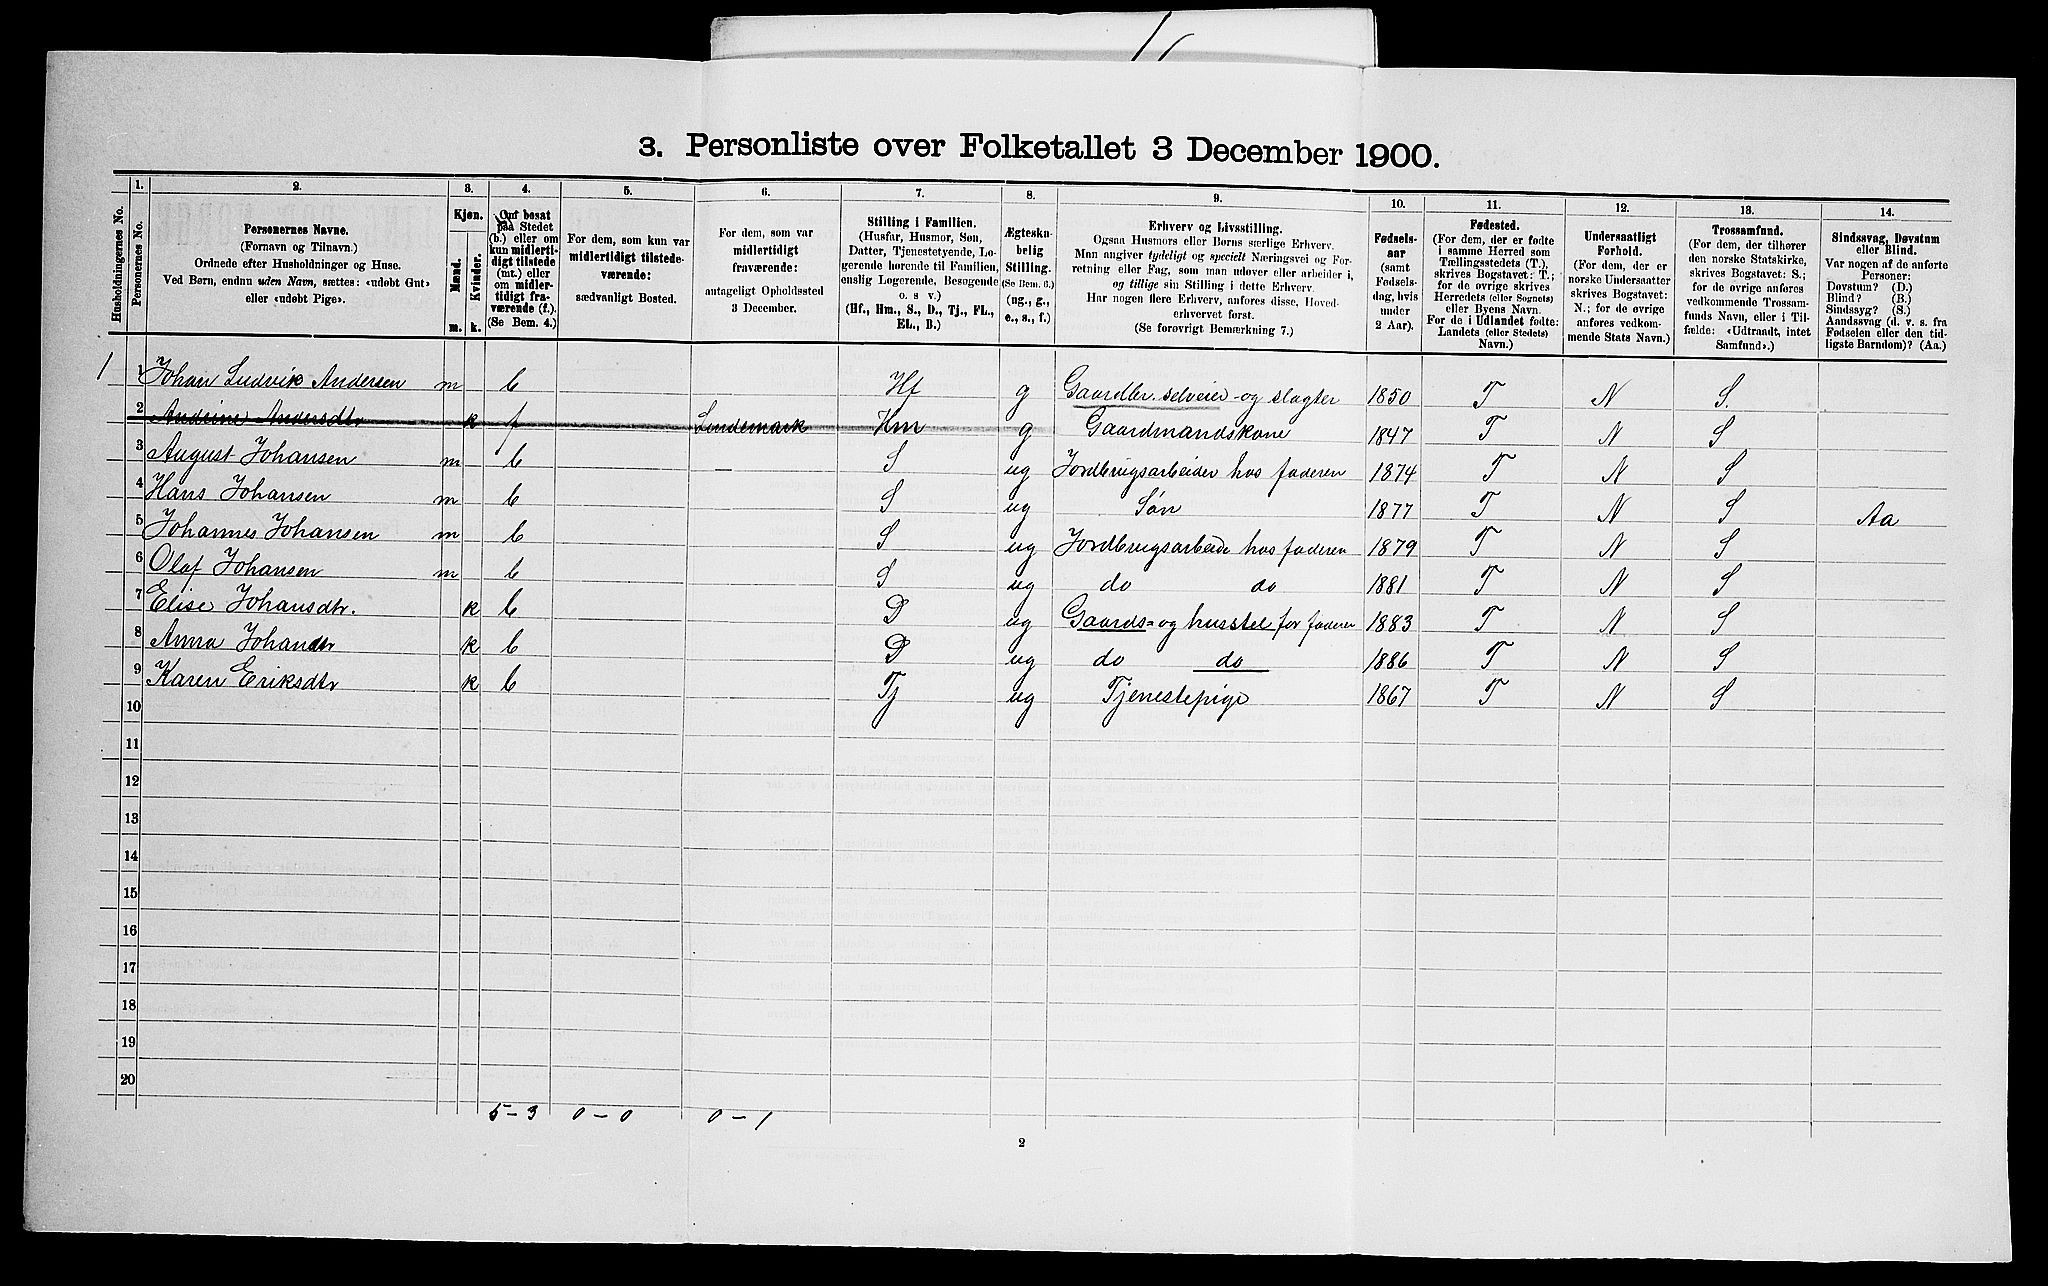 3. Personliste over Folketallet 3 December 1900.
Husholdningernes No.
1.
Personernes No.
2.
Personernes Navne.
(Fornavn og Tilnavn.)
Ordnede efter Husholdninger og Huse.
Ved Børn, endnu uden Navn, sættes: «udøbt Gut»
eller «udøbt Pige».
3.
Kjøn.
Mænd.
Kvinder.
m. k.
4.
Om bosat
paa Stedet
(b.) eller om
kun midlerti-
digt tilstede
(mt.) eller
om midler-
tidigt fra-
værende (f.).
(Se Bem. 4.)
5.
For dem, som kun var
midlertidigt tilstede-
værende:
sædvanligt Bosted.
6.
For dem, som var
midlertidigt
fraværende:
antageligt Opholdssted
3 December.
7.
Stilling i Familien.
(Husfar, Husmor, Søn,
Datter, Tjenestetyende, Lo-
gerende hørende til Familien,
enslig Logerende, Besøgende
o. s v.)
(Hf., Hm., S., D., Tj., FL.,
EL., B.)
8.
Ægteska-
belig
Stilling.
(Se Bem. 6.)
(ug., g.,
e., s., f.)
9.
Erhverv og Livsstilling.
Ogsaa Husmors eller Børns særlige Erhverv.
Man angiver tydeligt og specielt Næringsvei og For-
retning eller Fag, som man udøver eller arbeider i,
og tillige sin Stilling i dette Erhverv.
Har nogen flere Erhverv, anføres disse, Hoved-
erhvervet først.
(Se forøvrigt Bemærkning 7.)
10.
Fødsels-
aar
(samt
Fødsels-
dag, hvis
under
2 Aar).
11.
Fødested.
(For dem, der er fødte
i samme Herred som
Tællingsstedets (T.),
skrives Bogstavet: T.;
for de øvrige skrives
Herredets (eller Sognets)
eller Byens Navn.
For de i Udlandet fødte:
Landets (eller Stedets)
Navn.)
12.
Undersaatligt
Forhold.
(For dem, der er
norske Undersaatter
skrives Bogstavet:
N.; for de øvrige
anføres vedkom-
mende Stats Navn.)
13.
Trossamfund.
(For dem, der tilhører
den norske Statskirke,
skrives Bogstavet: S.;
for de øvrige anføres
vedkommende Trossam-
funds Navn, eller i Til-
fælde: «Udtraadt, intet
Samfund».)
14.
Sindssvag, Døvstum
eller Blind.
Var nogen af de anførte
Personer:
Døvstum? (D.)
Blind? (B.)
Sindssyg? (S.)
Aandssvag (d. v. s. fra
Fødselen eller den tid-
ligste Barndom)? (Aa.)
1 1 Johan Ludvik Andersen m b Hf g Gaardbr. selveier og slagter 1850 T N S.
2 Andrine Andersdtr k f Lindemark Hm g Gaardmandskone 1847 T N S
3 August Johansen m b S ug Jordbrugsarbeider hos faderen 1874 T N S
4 Hans Johansen m b S ug Søn 1877 T N S Aa
5 Johannes Johansen m b S ug Jordbrugsarbeide hos faderen 1879 T N S
6 Olaf Johansen m b S ug do do 1881 T N S
7 Elise Johansdtr. k b D ug Gaards= og husstel for faderen 1883 T N S
8 Anna Johansdtr k b D ug do do 1886 T N S
9 Karen Eriksdtr k b Tj ug Tjenestepige 1867 T N S
10
11
12
13
14
15
16
17
18
19
20
5-3 0-0 0-1
2